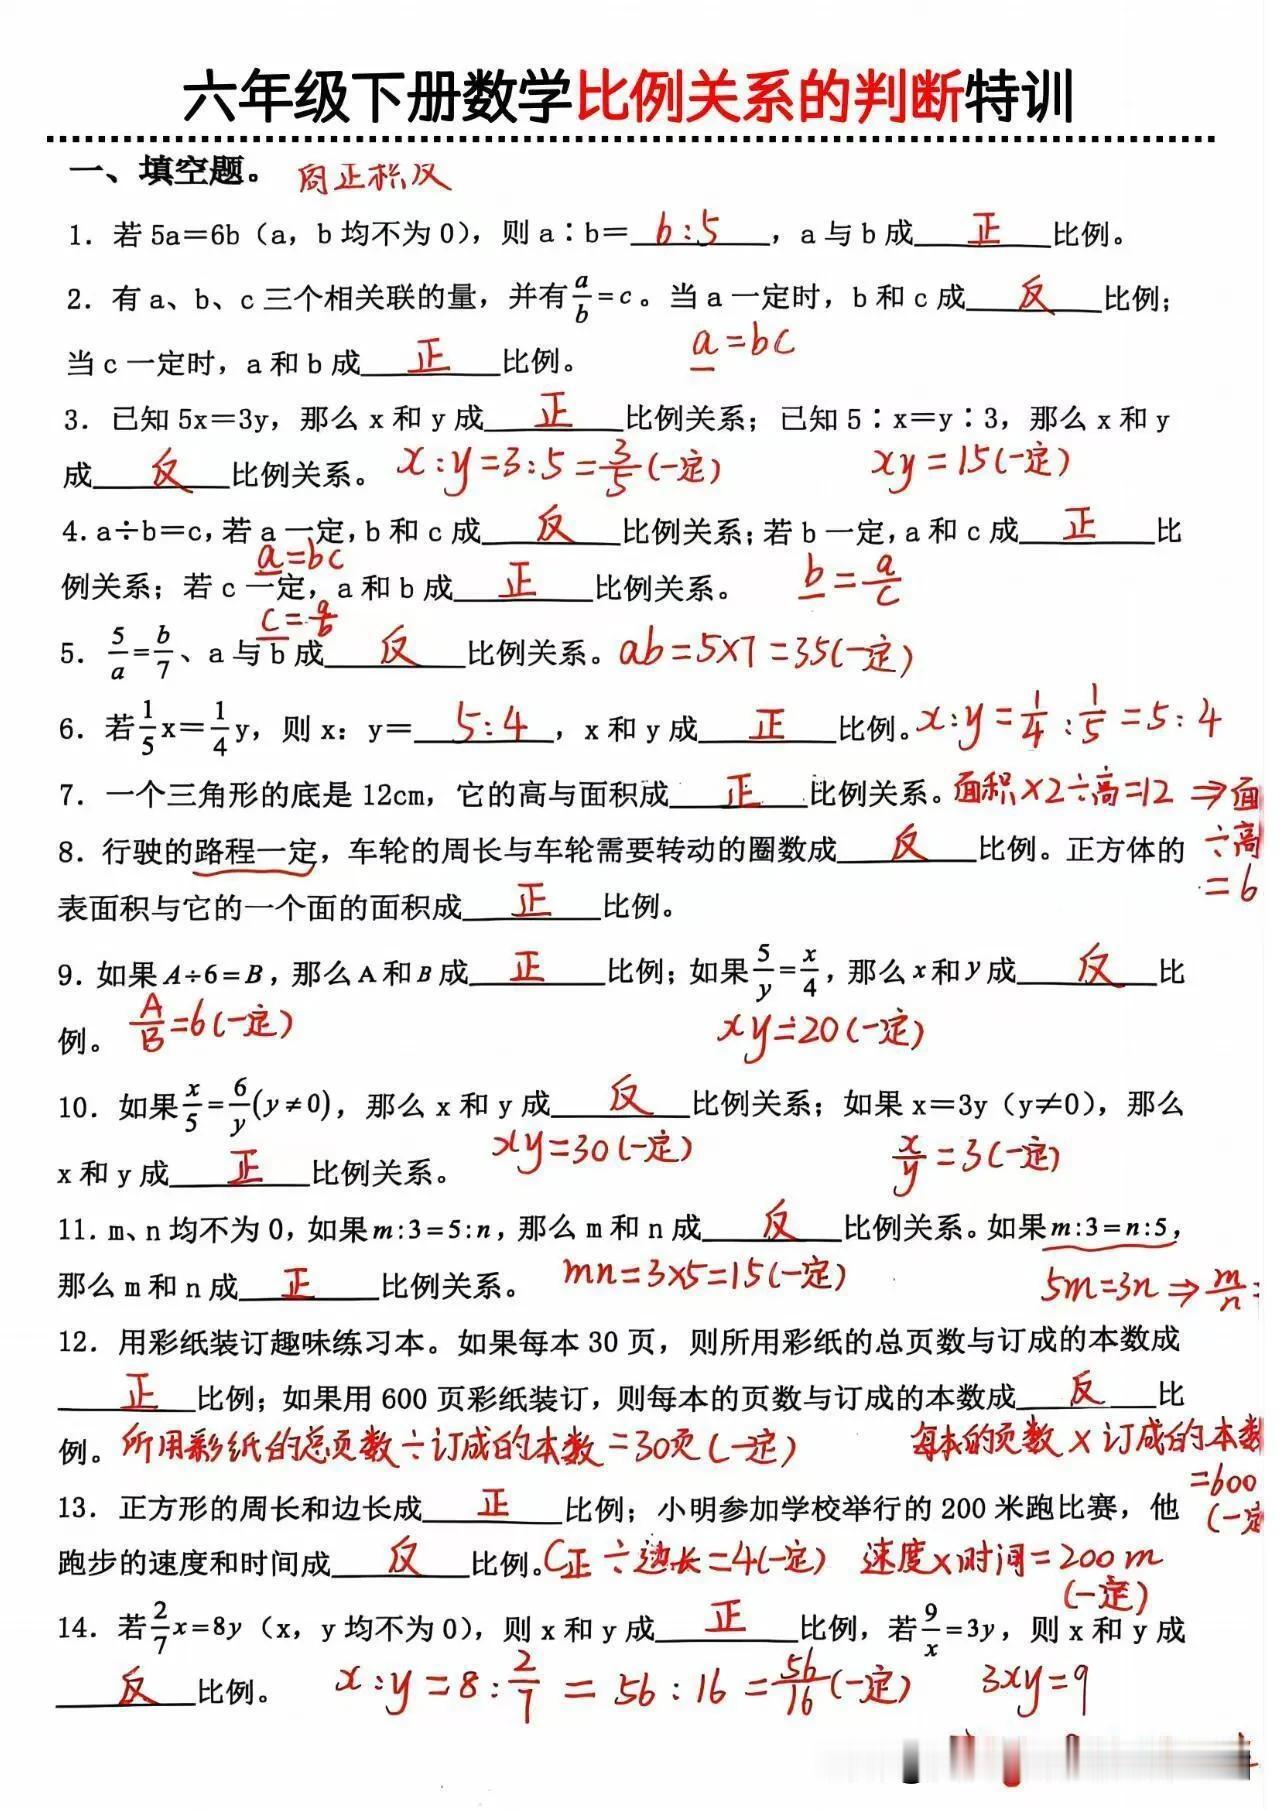 六年级下册数学比例关系的判断特训
一、填空题。 商正积反
1. 若 5a＝6b（a，b 均不为 0），则 a∶b＝ 6:5 ，a 与 b 成 正 比例。
2. 有 a、b、c 三个相关联的量，并有 a/b = c。当 a 一定时，b 和 c 成 反 比例；
当 c 一定时，a 和 b 成 正 比例。 a=bc
3. 已知 5x＝3y，那么 x 和 y 成 正 比例关系；已知 5∶x＝y∶3，那么 x 和 y
成 反 比例关系。 x:y=3:5=3/5(一定) xy=15(一定)
4. a÷b＝c，若 a 一定，b 和 c 成 反 比例关系；若 b 一定，a 和 c 成 正 比
a=bc
例关系；若 c 一定，a 和 b 成 正 比例关系。 b=a/c
c=a/b
5. 5/a = b/7、a 与 b 成 反 比例关系。 ab=5×7=35(一定)
6. 若 1/5 x＝1/4 y，则 x：y＝ 5:4 ，x 和 y 成 正 比例。 x:y=1/4:1/5=5:4
7. 一个三角形的底是 12cm，它的高与面积成 正 比例关系。 面积×2÷高=12 ⇒面
8. 行驶的路程一定，车轮的周长与车轮需要转动的圈数成 反 比例。正方体的 ÷高
表面积与它的一个面的面积成 正 比例。 =6
9. 如果 A÷6=B，那么 A 和 B 成 正 比例；如果 5/y = x/4，那么 x 和 y 成 反 比
例。 A/B=6(一定) xy=20(一定)
10. 如果 x/5 = 6/y (y≠0)，那么 x 和 y 成 反 比例关系；如果 x＝3y（y≠0），那么
x 和 y 成 正 比例关系。 xy=30(一定) x/y=3(一定)
11. m、n 均不为 0，如果 m:3=5:n，那么 m 和 n 成 反 比例关系。如果 m:3=n:5，
那么 m 和 n 成 正 比例关系。 mn=3×5=15(一定) 5m=3n⇒m/n=
12. 用彩纸装订趣味练习本。如果每本 30 页，则所用彩纸的总页数与订成的本数成
正 比例；如果用 600 页彩纸装订，则每本的页数与订成的本数成 反 比
例。 所用彩纸的总页数÷订成的本数=30页(一定) 每本的页数×订成的本数
=600
13. 正方形的周长和边长成 正 比例；小明参加学校举行的 200 米跑比赛，他 (一定
跑步的速度和时间成 反 比例。 C正÷边长=4(一定) 速度×时间=200m
(一定)
14. 若 2/7 x=8y（x，y 均不为 0），则 x 和 y 成 正 比例，若 9/x =3y，则 x 和 y 成
反 比例。 x:y=8:2/7=56:16=56/16(一定) 3xy=9